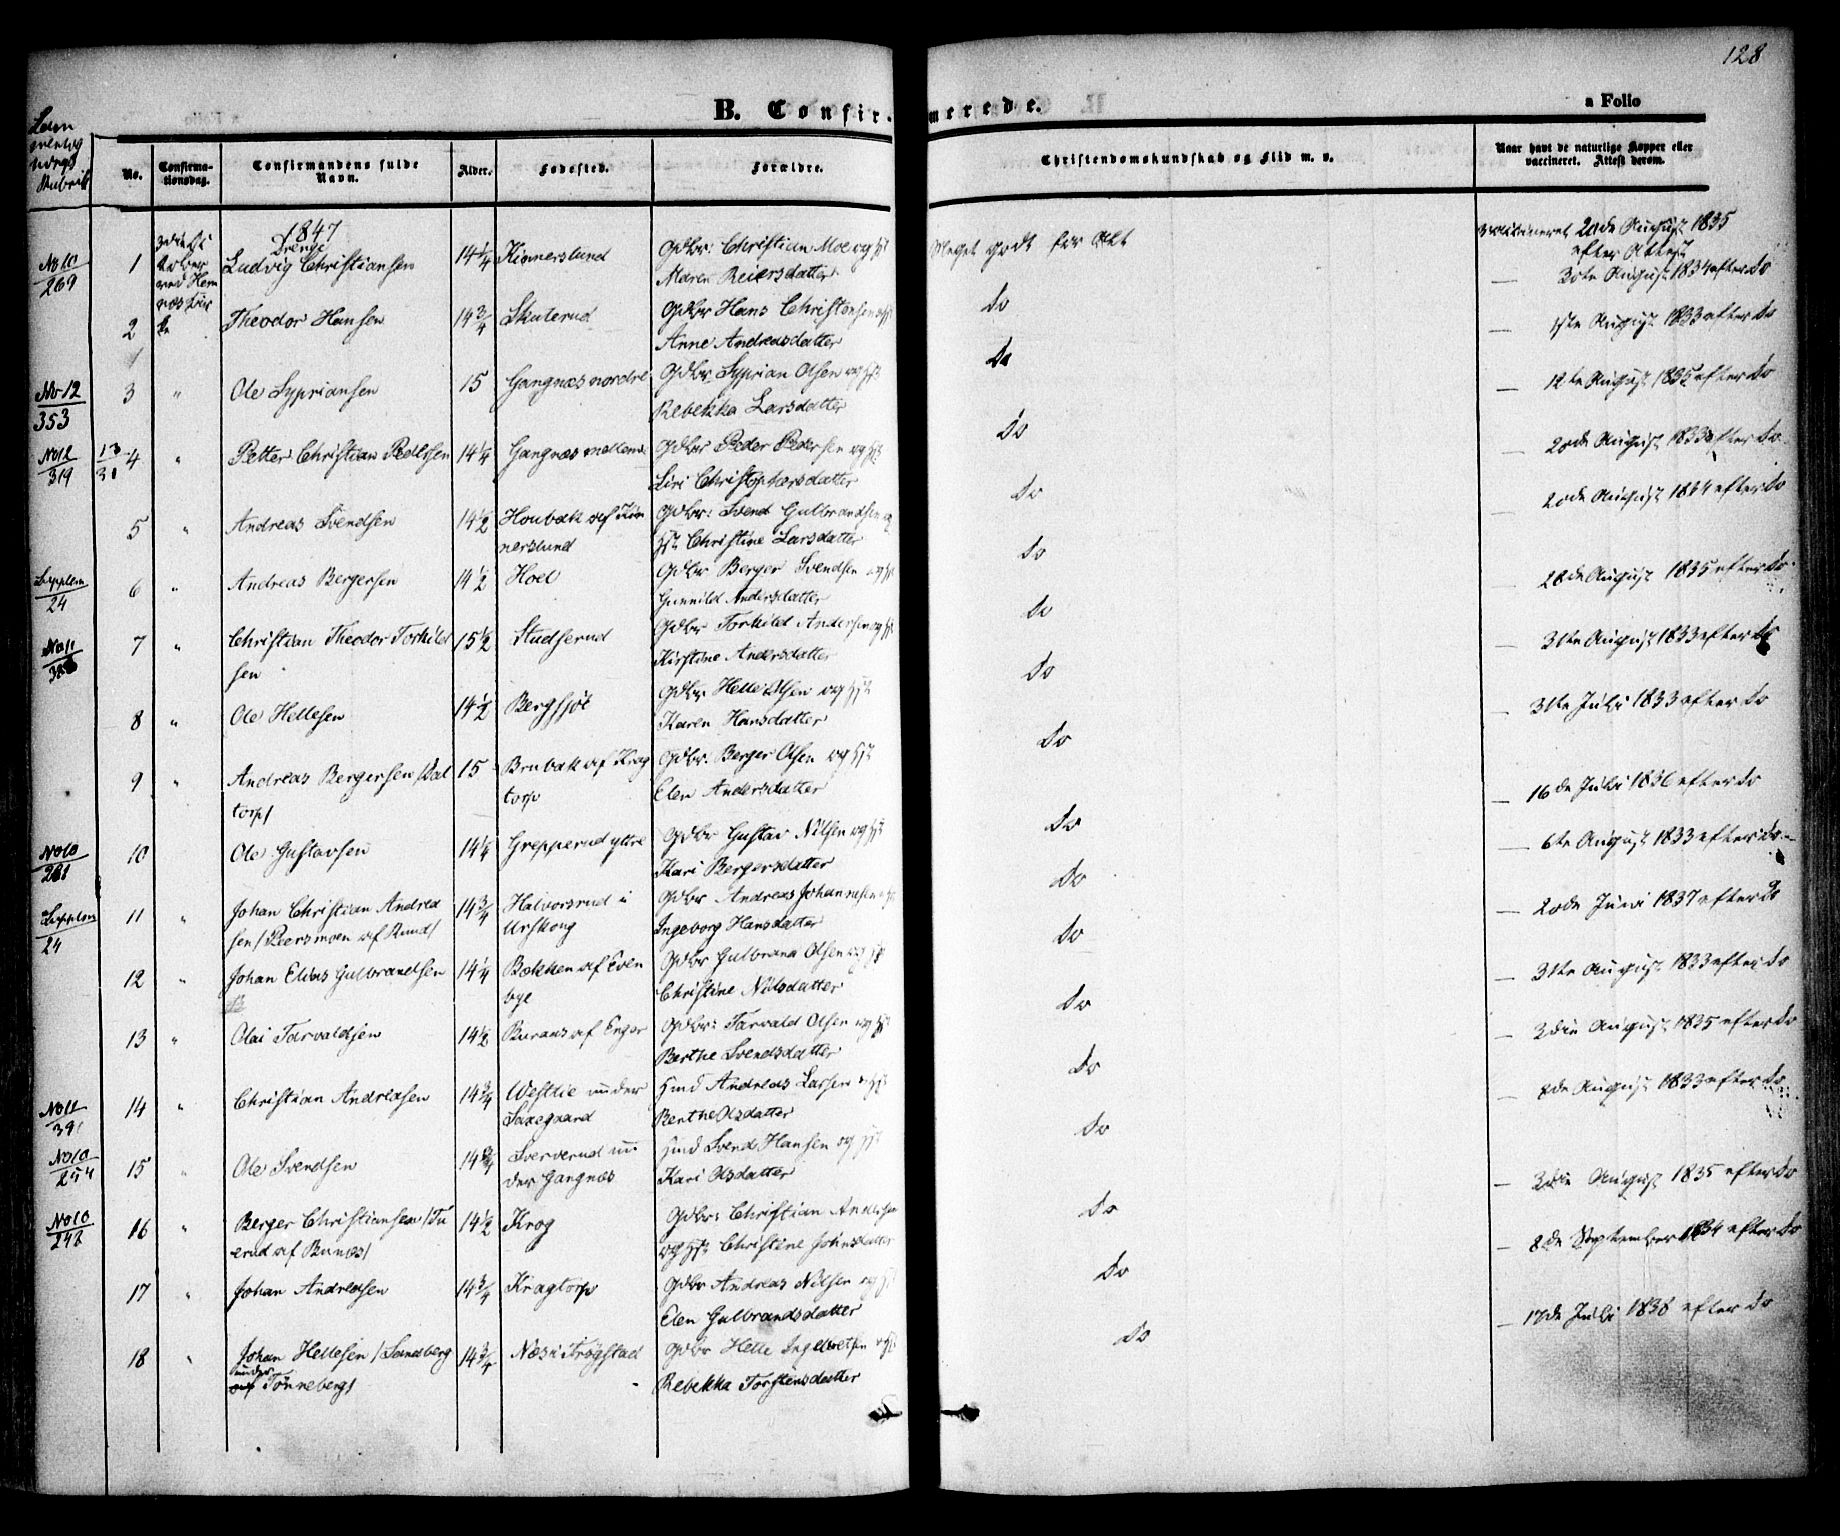 128
B. Confirmerede.
a Folio
No.
Confirmationsdag.
Confirmandens fulde Navn.
Alder.
Fødested.
Forældre.
Christendomskundskab og Flid m. v.
Naar havt de naturlige Kopper eller vaccineret. Attest derom.
1847
Drenge
No 10
269
1
Ludvig Christiansen
14 1/4
Kinnerslund
Gdbr: Christian Moe og Hst
Maren Reiersdatter
Meget godt for Alt
vaccineret 20de August 1835
efter Attest
2
Theodor Hansen
14 3/4
Skuterud
Gdbr Hans Christensen og Hst
Anne Andreasdatter
Do
— 30te August 1834 efter Do
No 12
353
3
"
Ole Sypriansen
15
Gangnæs nordre
Gdbr Syprian Olsen og Hst
Rebekka Larsdatter
Do
— 1ste August 1833 efter Do
No 12
319
13
31
4
"
Petter Christian Pedersen
14 1/4
Gangnæs mellem
Gdbr Peder Pedersen og Hst
Siri Christophersdatter
Do
— 12te August 1835 efter Do
5
"
Andreas Svendsen
14 1/2
Houbæk af Kin
nerslund
Gdbr: Svend Gulbrandsen og
Hst Christine Larsdatter
Do
— 20de August 1833 efter Do
Supplem
24
6
"
Andreas Bergersen
14 1/2
Hoel
Gdbr Berger Svendsen og Hst
Gunnild Andersdatter
Do
— 20de August 1834 efter Do
No 11
7
"
Christian Theodor Torkild
sen
15 1/2
Studserud
Gdbr Torkild Andersen og Hst
Kirstine Andersdatter
Do
— 28de August 1835 efter Do
8
"
Ole Hellesen
14 1/2
Bergsjøt
Gdbr Helle Olsen og Hst
Karen Hansdatter
Do
— 31te August 1833 efter Do
9
"
Andreas Bergersen /Dal
torp/
15
Brubæk af Krag
torp
Gdbr. Berger Olsen og Hst
Elen Andersdatter
Do
— 31te Juli 1833 efter Do
No 10
281
10
Ole Gustavsen
14 1/4
Grepperud ytre
Gdbr Gustav Nilsen og Hst
Kari Bergersdatter
Do
— 16de Juli 1836 efter Do
Supplem
24
11
"
Johan Christian Andrea
sen /Peersmoen af Rud/
14 3/4
Halvorsrud i
Urskoug
Gdbr Andreas Johannesen og Hst
Ingeborg Hansdatter
Do
— 6te August 1833 efter Do
12
"
Johan Elias Gulbrandsen
14 1/4
Bakken af Even
bye
Gdbr Gulbrand Olsen og Hst
Christine Nilsdatter
Do
— 20de Juni 1837 efter Do
13
"
Olai Tarvaldsen
14 1/2
Burans af Enger
Gdbr: Tarvald Olsen og Hst
Berthe Svendsdatter
Do
— 31te August 1833 efter Do
No 11
391
14
"
Christian Andreasen
14 3/4
Westlie under
Saxegaard
Hmd Andreas Larsen og Hst
Berthe Olsdatter
Do
— 3die August 1835 efter Do
No 10
254
15
"
Ole Svendsen
14 3/4
Sververud un
der Gangnæs
Hmd Svend Hansen og Hst
Kari Olsdatter
Do
— 8de August 1833 efter Do
No 10
248
16
"
Berger Christiansen /Tu
erud af Bunæs/
14 1/2
Krog
Gdbr: Christian Andersen
og Hst Christine Johnsdatter
Do
— 3die August 1835 efter Do
17
"
Johan Andreasen
14 3/4
Kragtorp
Gdbr Andreas Nilsen og Hst
Elen Gulbrandsdatter
Do
— 8de September 1834 efter Do
18
"
Johan Hellesen /Sandberg
under
Tønneberg/
14 3/4
Næs i Trøgstad
Gdbr Helle Ingebretsen og Hst
Rebekka Torstensdatter
Do
— 17de Juli 1838 efter Do